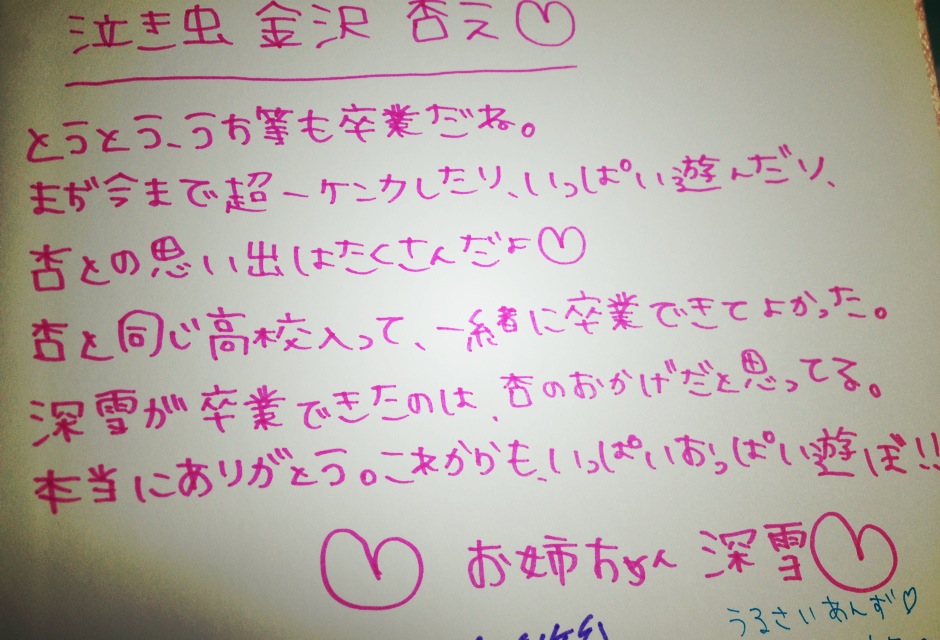 泣き虫 金沢 杏え♡
とうとう、うち等も卒業だね。
まぢ今まで超ーケンカしたり、いっぱい遊んだり、
杏との思い出はたくさんだよ♡
杏と同じ高校入って、一緒に卒業できてよかった。
深雪が卒業できたのは、杏のおかげだと思ってる。
本当にありがとう。これからも、いっぱいおっぱい遊ぼ!!
♡ お姉ちゃん 深雪♡
うるさいあんず♡